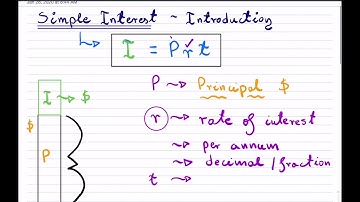 Simple Interest ~ Introduction
I = P r t
P → Principal $
I → $
r → rate of interest
$
→ per annum
P
→ decimal / fraction
t →